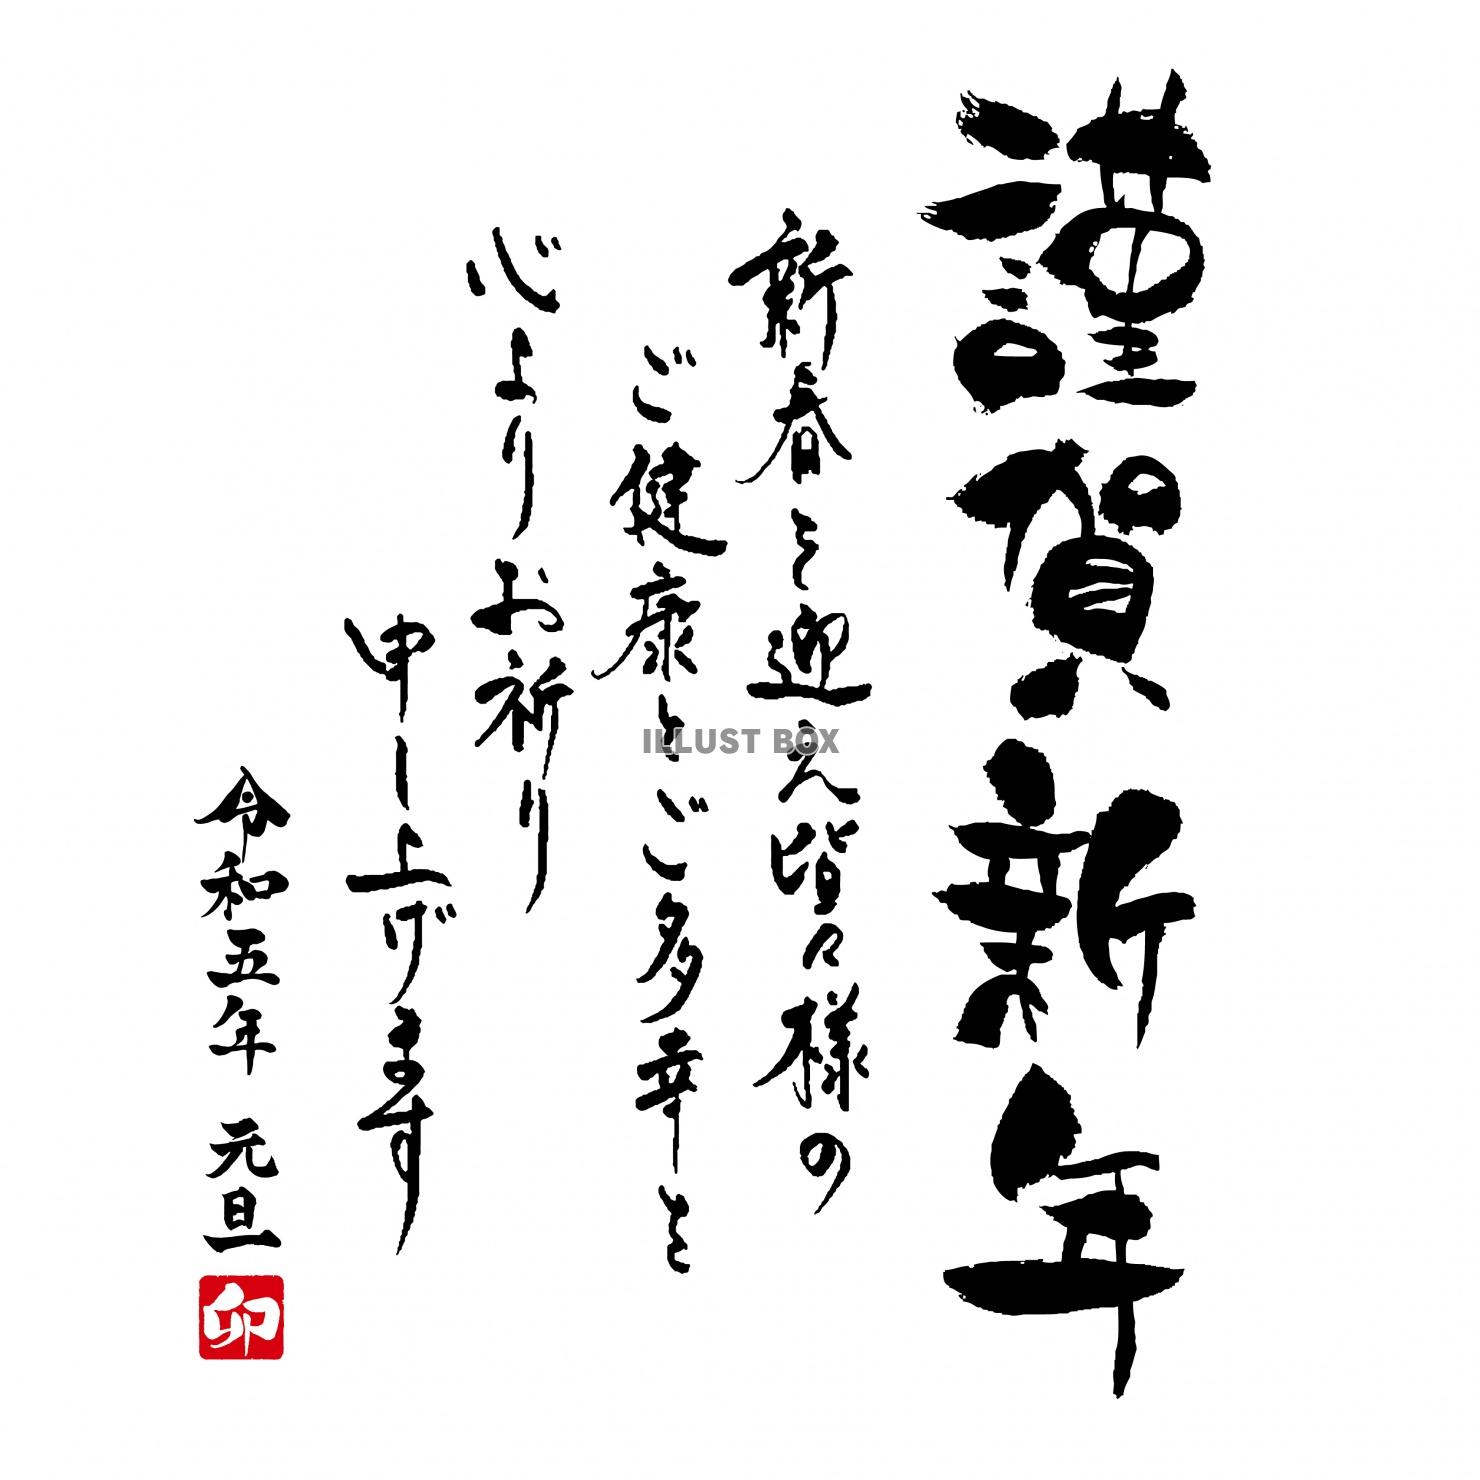 謹賀新年
新春を迎え皆々様の
ご健康とご多幸を
心よりお祈り
申し上げます
令和五年 元旦
卯
ILLUST BOX